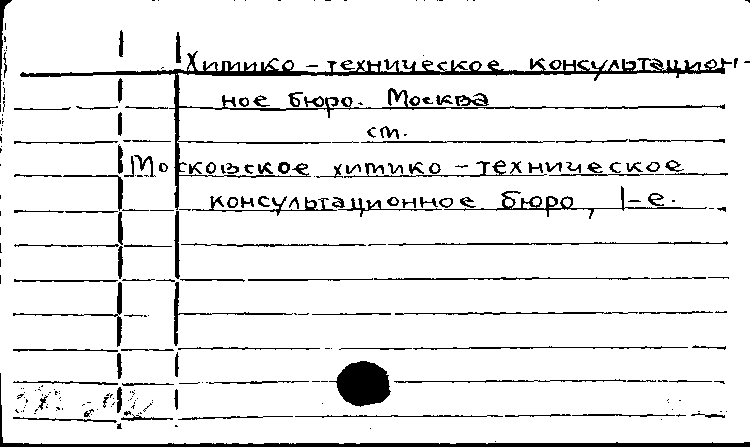 Химико-техническое консультацион-
ное бюро. Москва
ст.
Московское химико-техническое
консультационное бюро, 1-е.